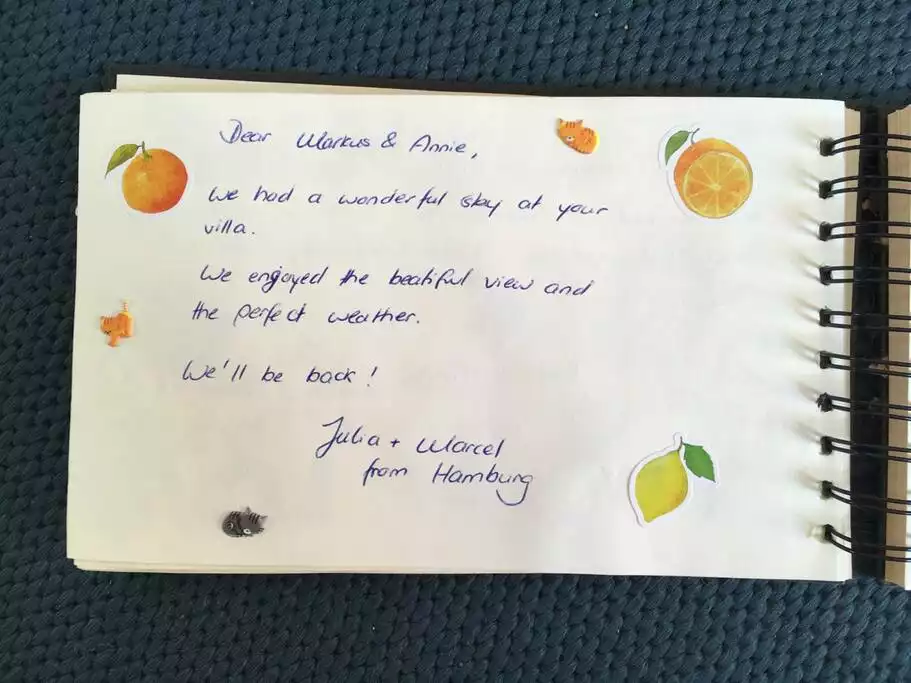 Dear Markus & Annie,
We had a wonderful stay at your
villa.
We enjoyed the beatiful view and
the perfect weather.
We'll be back!
Julia + Marcel
from Hamburg